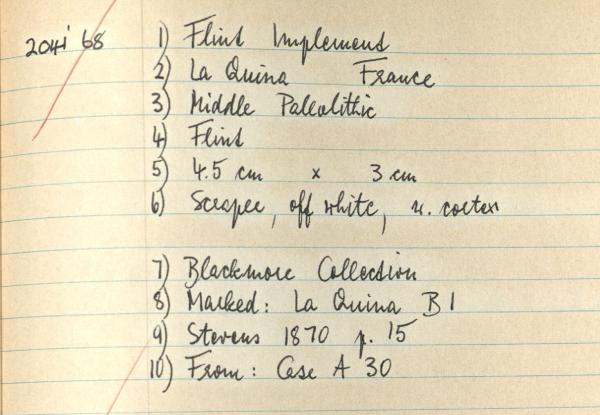 204i 68 1) Flint Implement
2) La Quina France
3) Middle Paleolithic
4) Flint
5) 4.5 cm x 3 cm
6) Scraper, off white, w. cortex
7) Blackmore Collection
8) Marked: La Quina B 1
9) Stevens 1870 p. 15
10) From: Case A 30